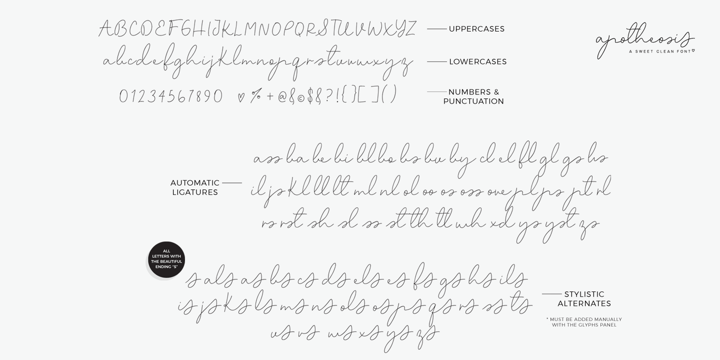 ABCDEFGHIJKLMNOPQRSTUVWXYZ
UPPERCASES
apotheosis
A SWEET CLEAN FONT♡
abcdefghijklmnopqrstuvwxyz
LOWERCASES
01234567890 ♡ % + @ & © $ & ? ! { } [ ] ( )
NUMBERS &
PUNCTUATION
ass ba be bi bl bo bs bu by cl el fl gl gs hs
AUTOMATIC
LIGATURES
il js kl ll llt ml nl ol oo os oss ove pl ps pt rl
rs rst sh sl ss st th tl wh xd ys yst zs
ALL
LETTERS WITH
THE BEAUTIFUL
ENDING "S"
s als as bs cs ds els es fs gs hs ils
is js ks ls ms ns ols os ps qs rs ss ts
us vs ws xs ys zs
STYLISTIC
ALTERNATES
* MUST BE ADDED MANUALLY
WITH THE GLYPHS PANEL